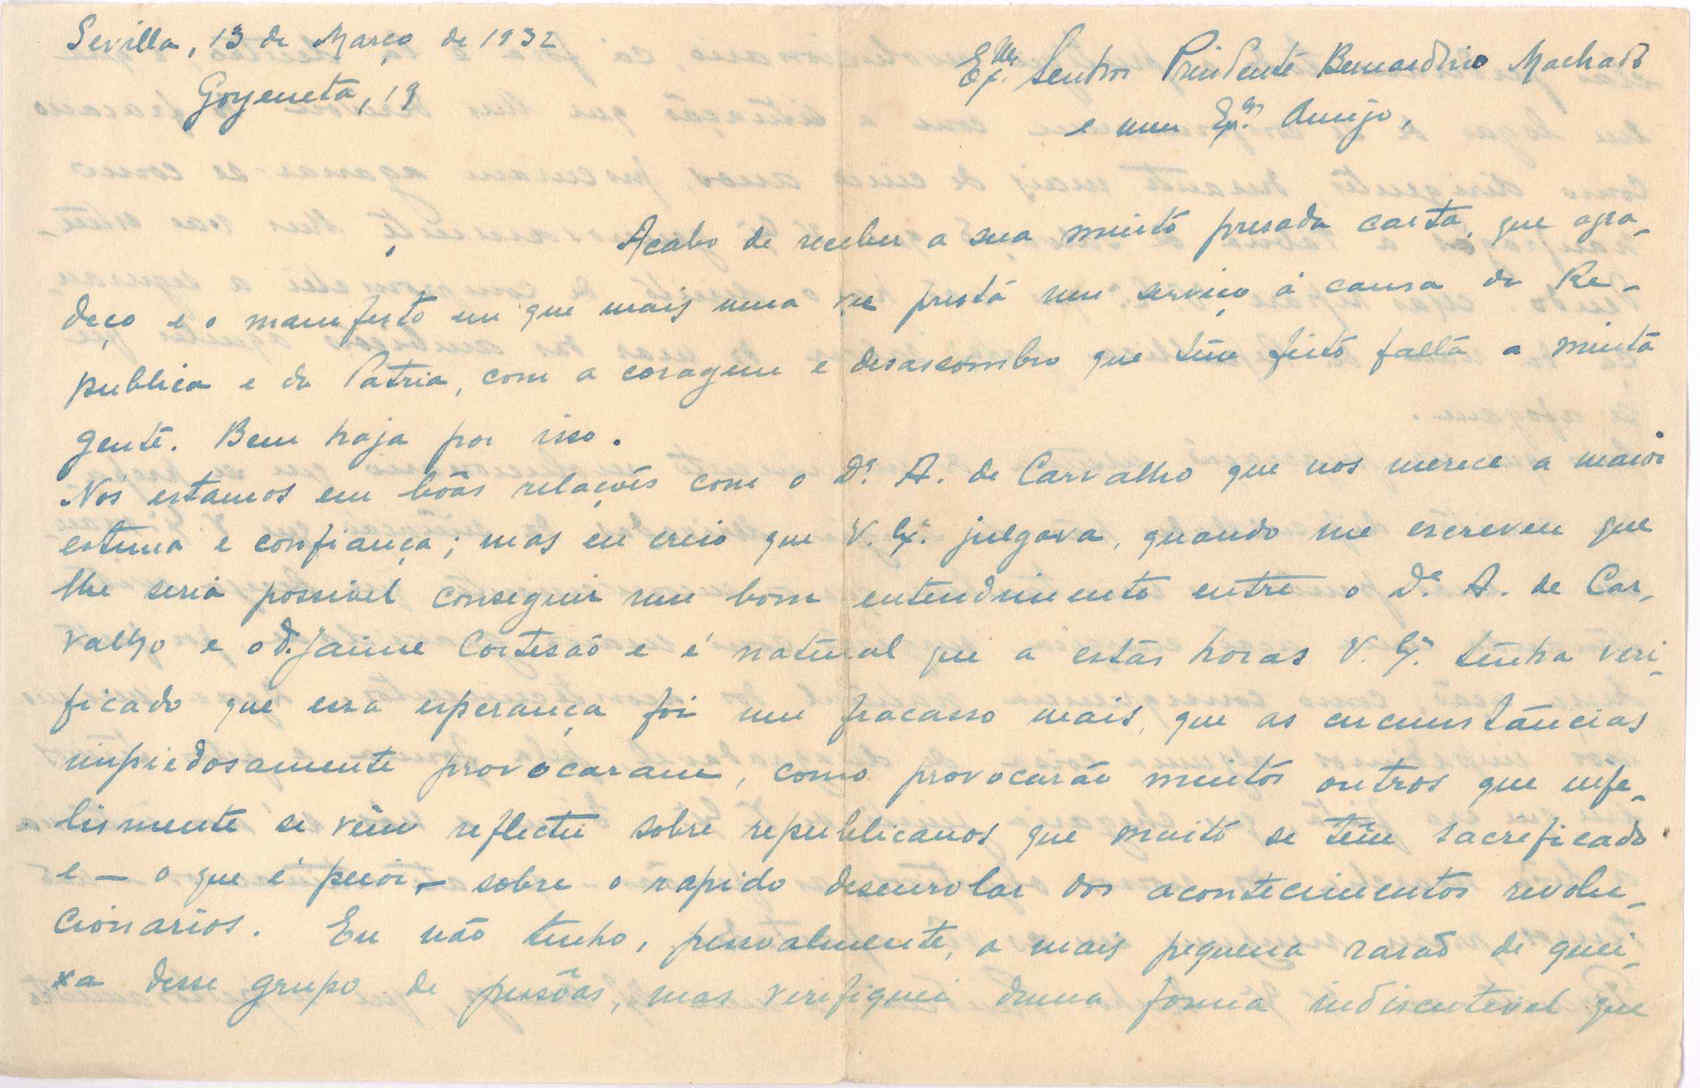 Sevilla, 13 de Março de 1932
Goyeneta, 19
Exmo. Senhor Presidente Bernardino Machado
e meu Exmo. Amigo,
Acabo de receber a sua muito presada carta, que agra-
deço e o manifesto em que mais uma vez presta um serviço á causa da Re-
publica e da Patria, com a coragem e desassombro que têm feito falta a muita
gente. Bem haja por isso.
Nós estamos em bôas relações com o Dr. A. de Carvalho que nos merece a maior
estima e confiança; mas eu creio que V. Exª. julgava, quando me escreveu que
lhe seria possivel conseguir um bom entendimento entre o Dr. A. de Car-
valho e o Dr. Jaime Cortesão e é natural que a estas horas V. Exª. tenha veri-
ficado que essa esperança foi um fracasso mais, que as circumstâncias
impiedosamente provocaram, como provocarão muitos outros que infe-
lismente se vêm reflectir sobre republicanos que muito se têm sacrificado
e — o que é peior — sobre o rapido desenrolar dos acontecimentos revolu-
cionarios. Eu não tenho, pessoalmente, a mais pequena rasão de quei-
xa desse grupo de pessôas, mas verifiquei duma forma indiscutivel que